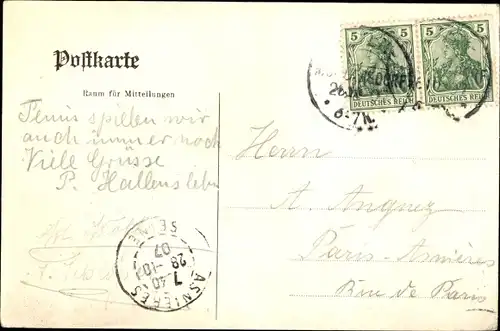 Postkarte
Raum für Mitteilungen
Tennis spielen wir
auch immer noch
Viele Grüsse
P. Hallensleben
5 5
5 5
DEUTSCHES REICH
DEUTSCHES REICH
6-7N.
Herrn
A. Anguez
Paris-Asnières
Rue de Paris
ASNIÈRES
SEINE
7 40
28 -10
07